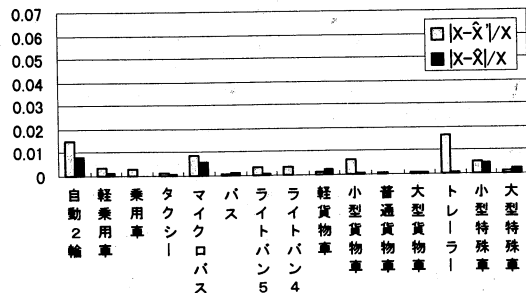 0.07
0.06
0.05
0.04
0.03
0.02
0.01
0
|X-X̂'|/X
|X-X̂|/X
自動2輪
軽乗用車
乗用車
タクシー
マイクロバス
バス
ライトバン5
ライトバン4
軽貨物車
小型貨物車
普通貨物車
大型貨物車
トレーラー
小型特殊車
大型特殊車